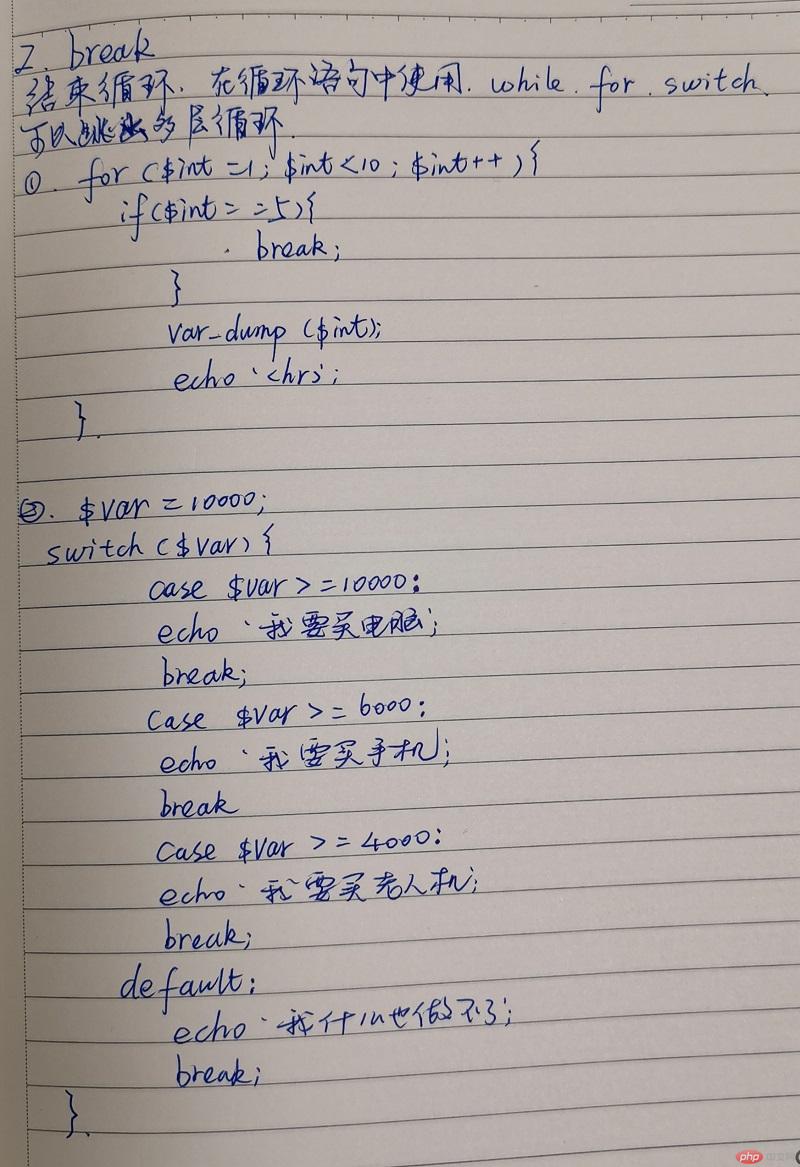 2. break
结束循环. 在循环语句中使用. while. for. switch.
可以跳出多层循环.
①. for ($int =1; $int<10; $int++){
if($int = =5){
break;
}
var_dump ($int);
echo '<hr>';
}.
②. $var =10000;
switch ($var) {
case $var >=10000:
echo '我要买电脑';
break;
case $var >= 6000:
echo '我要买手机';
break
case $var >= 4000:
echo '我要买老人机';
break;
default:
echo '我什么也做不了';
break;
}.
php 中文网